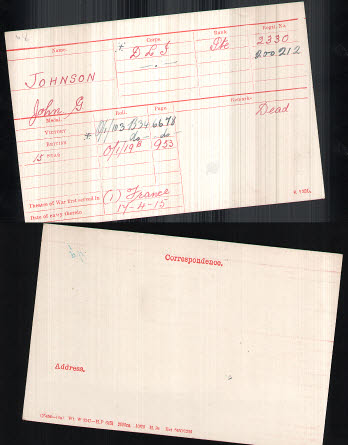 Name. Corps. Rank. Regtl. No.
JOHNSON * D L I Pte 2330
— . — 200212
John G
Medal. Roll. Page. Remarks.
Victory * 0/1/103 B34 6678 Dead
British do do
15 Star 0/1/19 B 953
Theatre of War first served in (1) France
Date of entry therein 17-4-15
K 1380.
Correspondence.
Address.